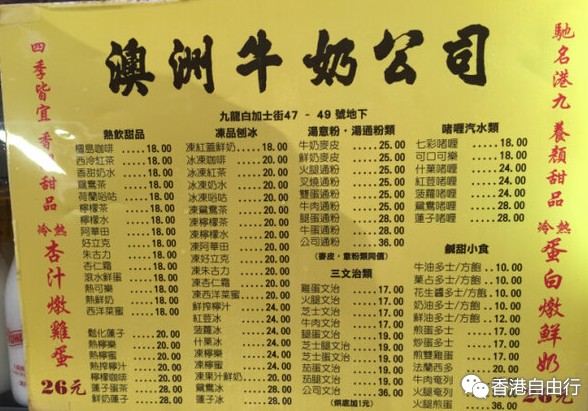 澳洲牛奶公司
九龍白加士街47 - 49 號地下
四季皆宜 香滑甜品
冷熱 杏汁燉雞蛋
26元
馳名港九 養顏甜品
冷熱 蛋白燉鮮奶
熱飲甜品
檀島咖啡 .....18.00
西冷紅茶 .....18.00
香甜奶水 .....18.00
鴛鴦茶 .....18.00
荷蘭唂咕 .....18.00
檸檬茶 .....18.00
檸檬水 .....18.00
阿華田 .....18.00
好立克 .....18.00
朱古力 .....18.00
杏仁霜 .....18.00
滾水鮮蛋 .....18.00
熱可樂 .....18.00
熱鮮奶 .....18.00
西洋菜蜜 .....18.00
鬆化蓮子 .....20.00
熱檸樂 .....20.00
熱檸蜜 .....20.00
熱撈檸汁 .....20.00
檸檬咖啡 .....20.00
蓮子蛋茶 .....28.00
鮮奶蓮子 .....28.00
凍品刨冰
凍紅荳鮮奶 .....18.00
冰凍咖啡 .....20.00
冰凍紅茶 .....20.00
冰凍奶水 .....20.00
冰凍唂咕 .....20.00
凍鴛鴦茶 .....20.00
凍檸檬茶 .....20.00
凍檸檬水 .....20.00
凍阿華田 .....20.00
凍好立克 .....20.00
凍朱古力 .....20.00
凍杏仁霜 .....20.00
凍西洋菜蜜 .....20.00
鮮檸檬汁 .....24.00
紅荳冰 .....24.00
菠蘿冰 .....24.00
什菓冰 .....24.00
凍檸樂 .....24.00
凍檸蜜 .....24.00
凍菓汁鮮奶 .....24.00
鴛鴦冰 .....28.00
蓮子冰 .....28.00
湯意粉·湯通粉類
牛奶麥皮 .....25.00
鮮奶麥皮 .....25.00
火腿通粉 .....25.00
叉燒通粉 .....25.00
雙蛋通粉 .....25.00
牛肉通粉 .....25.00
腿蛋通粉 .....28.00
牛蛋通粉 .....28.00
公司通粉 .....36.00
(麥皮、意粉類同價)
三文治類
雞蛋文治 .....17.00
火腿文治 .....17.00
芝士文治 .....17.00
牛肉文治 .....17.00
腿蛋文治 .....20.00
芝士腿文治 .....20.00
芝士蛋文治 .....20.00
茄蛋文治 .....20.00
茄腿文治 .....20.00
公司文治 .....36.00
(烘底加1元)
啫喱汽水類
七彩啫喱 .....18.00
可口可樂 .....18.00
什菓啫喱 .....24.00
紅荳啫喱 .....24.00
菠蘿啫喱 .....24.00
鴛鴦啫喱 .....28.00
蓮子啫喱 .....28.00
鹹甜小食
牛油多士/方飽 ..10.00
菓占多士/方飽 ..10.00
花生醬多士/方飽 ..10.00
奶油多士/方飽 ..10.00
鮮油多士/方飽 ..12.00
煎蛋多士
炒蛋多士
煎雙雞蛋
法蘭西多
牛肉奄列
火腿奄列
火腿煎蛋 .....36.00
香港自由行